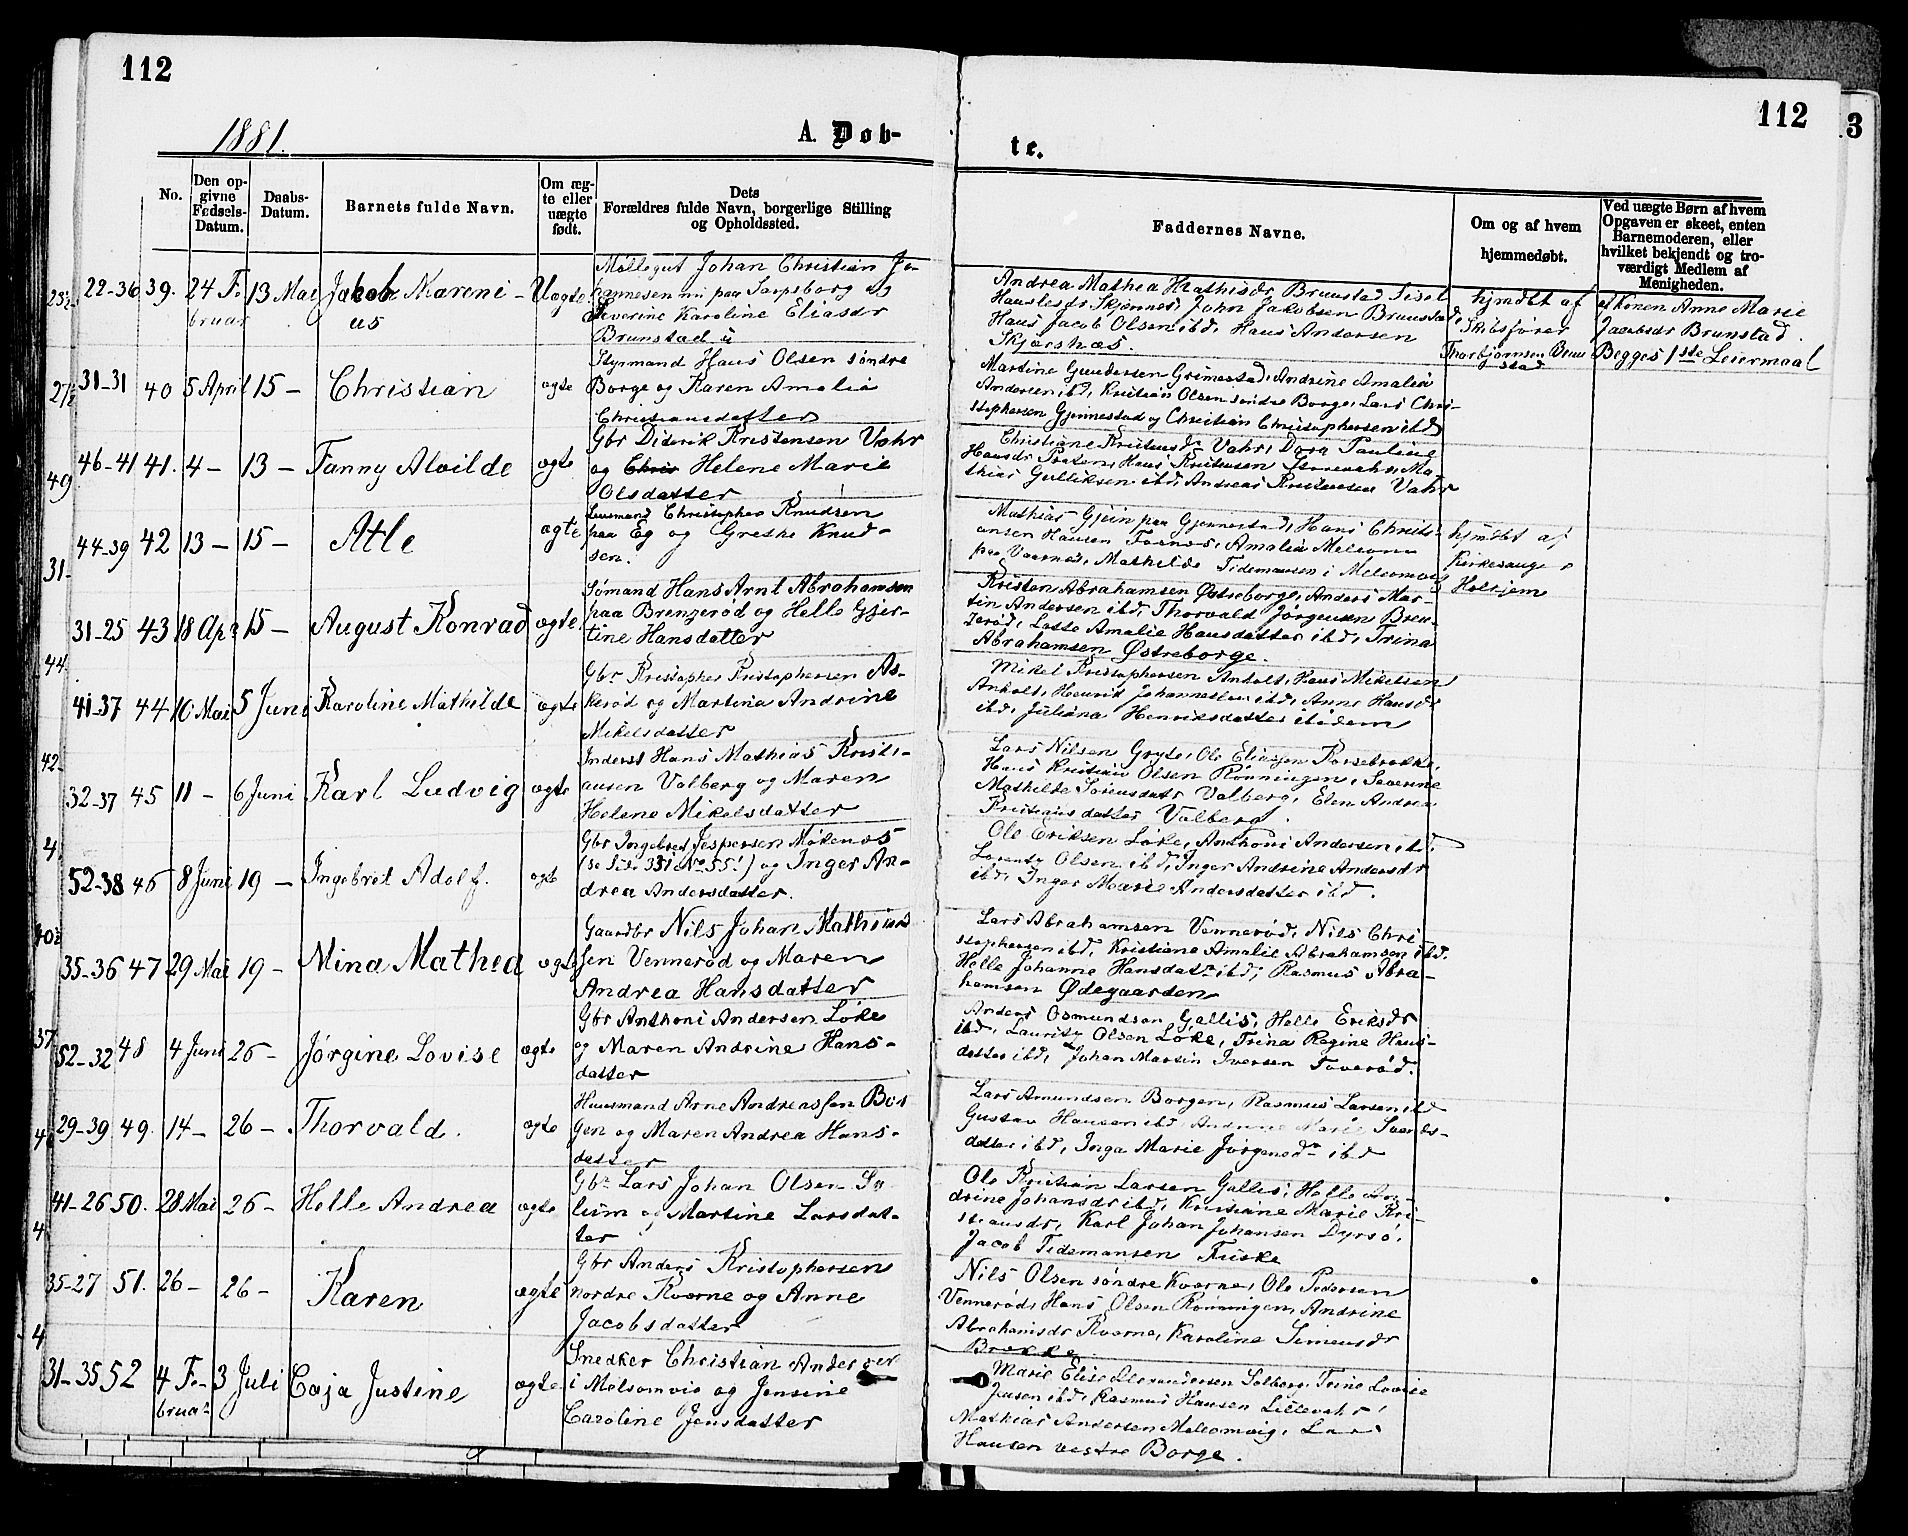 112
112
3
1881.
A. Døb-
te.
No.
Den op-
givne
Fødsels-
Datum.
Daabs-
Datum.
Barnets fulde Navn.
Om æg-
te eller
uægte
født.
Dets
Forældres fulde Navn, borgerlige Stilling
og Opholdssted.
Faddernes Navne.
Om og af hvem
hjemmedøbt.
Ved uægte Børn af hvem
Opgaven er skeet, enten
Barnemoderen, eller
hvilket bekjendt og tro-
værdigt Medlem af
Menigheden.
22-36 39. 24 Fe 13 Mai Jakob Kareni- Uægte
bruar us
Møllegut Johan Christian Jo-
hannesen nu paa Sarpsborg og
Severine Karoline Eliasdr
Brunstad
Andrea Mathea Mathisdr Brunstad,
Hansdr Skjærnes, John Jakobsen Brunstad,
Hans Jacob Olsen ibd, Hans Andersen
Skjærsnæs.
hjmdbt af
Skibsfører
Thorbjørnsen Brun
stad
af Konen Anne Marie
Jacobsdr Brunstad.
Begges 1ste Leiermaal
31-31 40 5 April 15- Christian ægte
Styrmand Hans Olsen søndre
Borge og Karen Amalia
Christiansdatter
Martine Gundersen Grimestad, Andrine Amalia
Andersen ibd, Kristian Olsen søndre Borge, Lars Chri-
stophersen Gjennestad og Christian Christophersen ibd
46-41 41. 4- 13- Fanny Alvilde ægte
Gbr Diderik Kristensen Vahr
og Helene Marie
Olsdatter
Christiane Kristensdr Vahr, Dora Pauline
Hansdr Præsten, Hans Kristensen Ma-
thias Gulliksen ibd, Andreas Kristensen Vahr
44-39 42 13- 15- Atle ægte
Lensmand Christopher Knudsen
paa Eg og Grethe Knud-
sen.
Mathias Gjein paa Gjennestad, Hans Christi-
ansen Hausen Amalia Melsom
paa Vaarnes, Mathilde Tidemansen i Melsomvig
hjmdbt af
Kirkesanger
Holtjem
31-25 43 18 Apr 15- August Konrad ægte
Sømand Hans Arnt Abrahamsen
paa Brenzerød og Helle Gjer-
tine Hansdatter
Kristen Abrahamsen Østreborge, Anders Mar-
tin Andersen ibd, Thorvald Jørgensen Bren-
zerød, Lotte Amalie Hansdatter ibd, Trina
Abrahamsen Østreborge.
41-37 44 10 Mai 5 Juni Karoline Mathilde ægte
Gbr Kristopher Kristophersen As-
kerød og Martina Andrine
Mikelsdatter
Mikel Kristophersen Anholt, Hans Mikelsen
Anholt, Henrik Johannesen ibd, Anne Hansdr
ibd, Juliana Henriksdatter ibidem
32-37 45 11- 6 Juni Karl Ludvig ægte
Inderst Hans Mathias Kristi-
ansen Valberg og Maren
Helene Mikelsdatter
Lars Nilsen Gryte, Ole Eliasen Korsebrække,
Hans Kristian Olsen Rønningen, Severine
Mathilde Sørensdatr Valberg, Elen Andrea
Kristiansdatter Valberg.
52-38 46 8 Juni 19- Ingebret Adolf. ægte
Gbr Ingebret Jespersen Mökenes
(se Side 351 No 55!) og Inger An-
drea Andersdatter.
Ole Eriksen Løke, Anthoni Andersen ibd,
Lorentz Olsen ibd, Inger Andrine Andersdr
ibd, Inger Marie Andersdatter ibd.
35-36 47 29 Mai 19- Mina Mathea ægte
Gaardbr Nils Johan Mathias
sen Vennerød og Maren
Andrea Hansdatter
Lars Abrahamsen Vennerød, Nils Chri
stophersen ibd, Kristiane Amalie Abrahamsen ibd.
Helle Johanne Hansdatr ibd, Rasmus Abra-
hamsen Ødegaarden
52-32 48 4 Juni 26- Jørgine Lovise ægte
Gbr Anthoni Andersen Løke
og Maren Andrine Hans-
datter
Anders Osmundsen Gallis, Helle Eriksdr
ibd, Lauritz Olsen Løke, Trina Regine Hans-
datter ibd, Johan Martin Iversen Toverød.
29-39 49. 14- 26- Thorvald. ægte
Huusmand Arne Andreassen Bor
gen og Maren Andrea Hans-
datter
Lars Amundsen Borgen, Rasmus Larsen ibd
Gustav Hansen ibd, Andrine Marie
datter ibd, Inga Marie Jørgensdr ibd
41-26 50. 28 Mai 26- Helle Andrea ægte
Gbr Lars Johan Olsen So
leim og Martine Larsdat-
ter
Ole Kristian Larsen Gallis, Helle An-
drine Johansdr ibd, Kristiane Marie Kri-
stiansdr, Karl Johan Johansen Dyrsø,
Jacob Tidemansen Fuske
35-27 51. 26- 26- Karen ægte
Gbr Anders Kristophersen
nordre Kværne og Anne
Jacobsdatter
Nils Olsen søndre Kværne, Ole Pedersen
Vennerød, Hans Olsen Rønningen, Andrine
Abrahamsdr Kværne, Karoline Simensdr
Brække.
31-35 52 4 Fe- 3 Juli Caja Justine ægte
bruar
Snedker Christian Andersen
i Melsomvig og Jensine
Caroline Jensdatter
Marie Elise Alexandersen Solberg, Trine Lovise
Jensen ibd, Rasmus Hansen Lillevahr,
Mathias Andersen Melsomvig, Lars
Hansen vestre Borge.